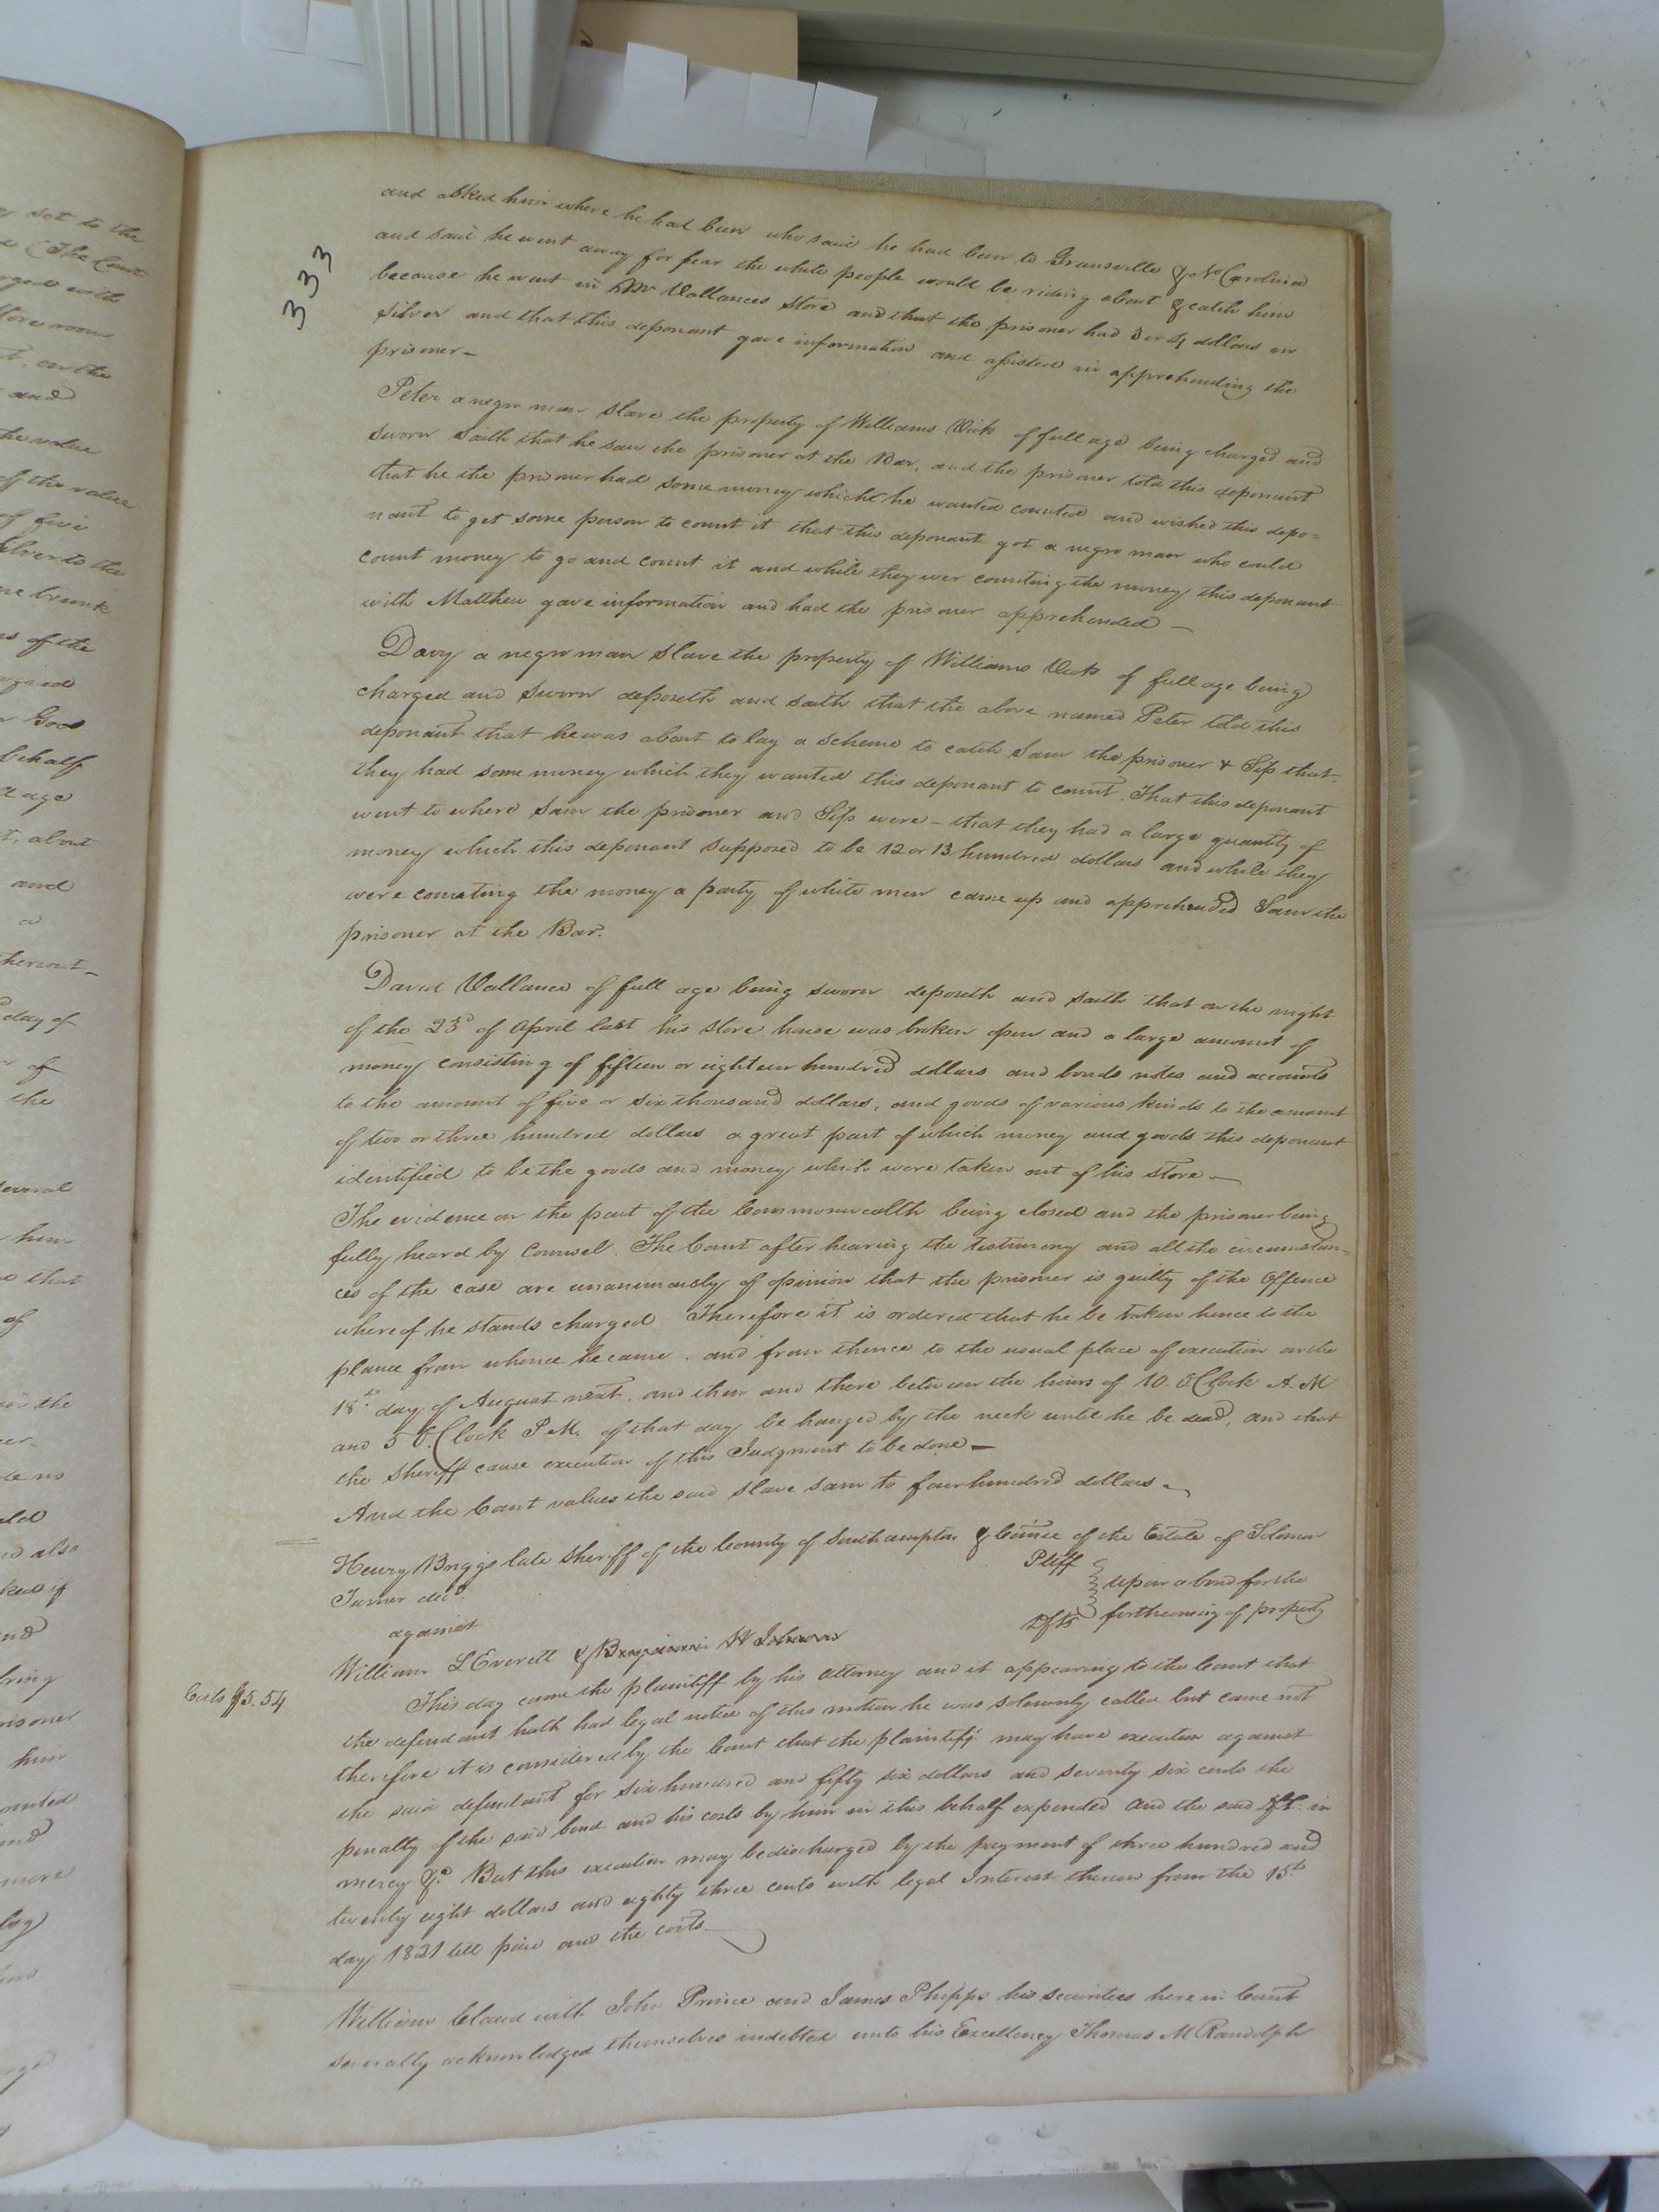 333
and asked him where he had been who said he had been to Gransville & No Carolina
and said he went away for fear the white people would be riding about & catch him
because he went in Mr Vallances store and that the prisoner had 3 or 4 dollars in
silver and that this deponant gave information and assisted in apprehending the
prisoner-
Peter a negro man slave the property of Williams Vick of full age being charged and
sworn saith that he saw the prisoner at the Bar, and the prisoner told this deponant
that he the prisoner had some money which he wanted counted and wished this depo=
nant to get some person to count it that this deponant got a negro man who could
count money to go and count it and while they wer counting the money this deponant
with Matthew gave information and had the prisoner apprehended -
Davy a negro man slave the property of Williams Vick of full age being
charged and sworn deposeth and saith that the above named Peter told this
deponant that he was about to lay a scheme to catch Sam the prisoner & Sip that
they had some money which they wanted this deponant to count. That this deponant
went to where Sam the prisoner and Sip were - that they had a large quantity of
money which this deponant supposed to be 12 or 13 hundred dollars and while they
were counting the money a party of white men came up and apprehended Sam the
prisoner at the Bar.
David Vallance of full age being sworn deposeth and saith that on the night
of the 23d of April last his store house was broken open and a large amount of
money consisting of fifteen or eighteen hundred dollars and bonds notes and accounts
to the amount of five or six thousand dollars, and goods of various kinds to the amount
of two or three hundred dollars a great part of which money and goods this deponant
identified to be the goods and money which were taken out of his store -
The evidence on the part of the Commonwealth being closed and the prisoner being
fully heard by Counsel. The Court after hearing the testimony and all the circumstan=
ces of the case are unanimously of opinion that the prisoner is guilty of the Offence
whereof he stands charged Therefore it is ordered that he be taken hence to the
place from whence he came. and from thence to the usual place of execution on the
18th day of August next. and then and there between the hours of 10 O Clock A.M
and 5 O. Clock P.M. of that day be hanged by the neck until he be dead, and that
the Sheriff cause execution of this Judgment to be done -
And the Court values the said slave Sam to four hundred dollars -
Henry Briggs late Sheriff of the County of Southampton & Comee of the Estate of Solomon
Turner decd. Pltff
against upon a bond for the
Dfts forthcoming of property
William L Everett & Benjamin W Johnson
Costs $5.54
This day came the plaintiff by his attorney and it appearing to the Court that
the defendant hath had legal notice of this motion he was solemnly called but came not
therefore it is considered by the Court that the plaintiff may have execution against
the said defendant for six hundred and fifty six dollars and seventy six cents the
penalty of the said bond and his costs by him in this behalf expended and the said Dft. in
mercy &c But this execution may be discharged by the payment of three hundred and
twenty eight dollars and eighty three cents with legal Interest thereon from the 15th
day 1821 till paid and the costs
William Claud with John Prince and James Phipps his securities here in Court
severally acknowledged themselves indebted unto his Excellency Thomas M Randolph